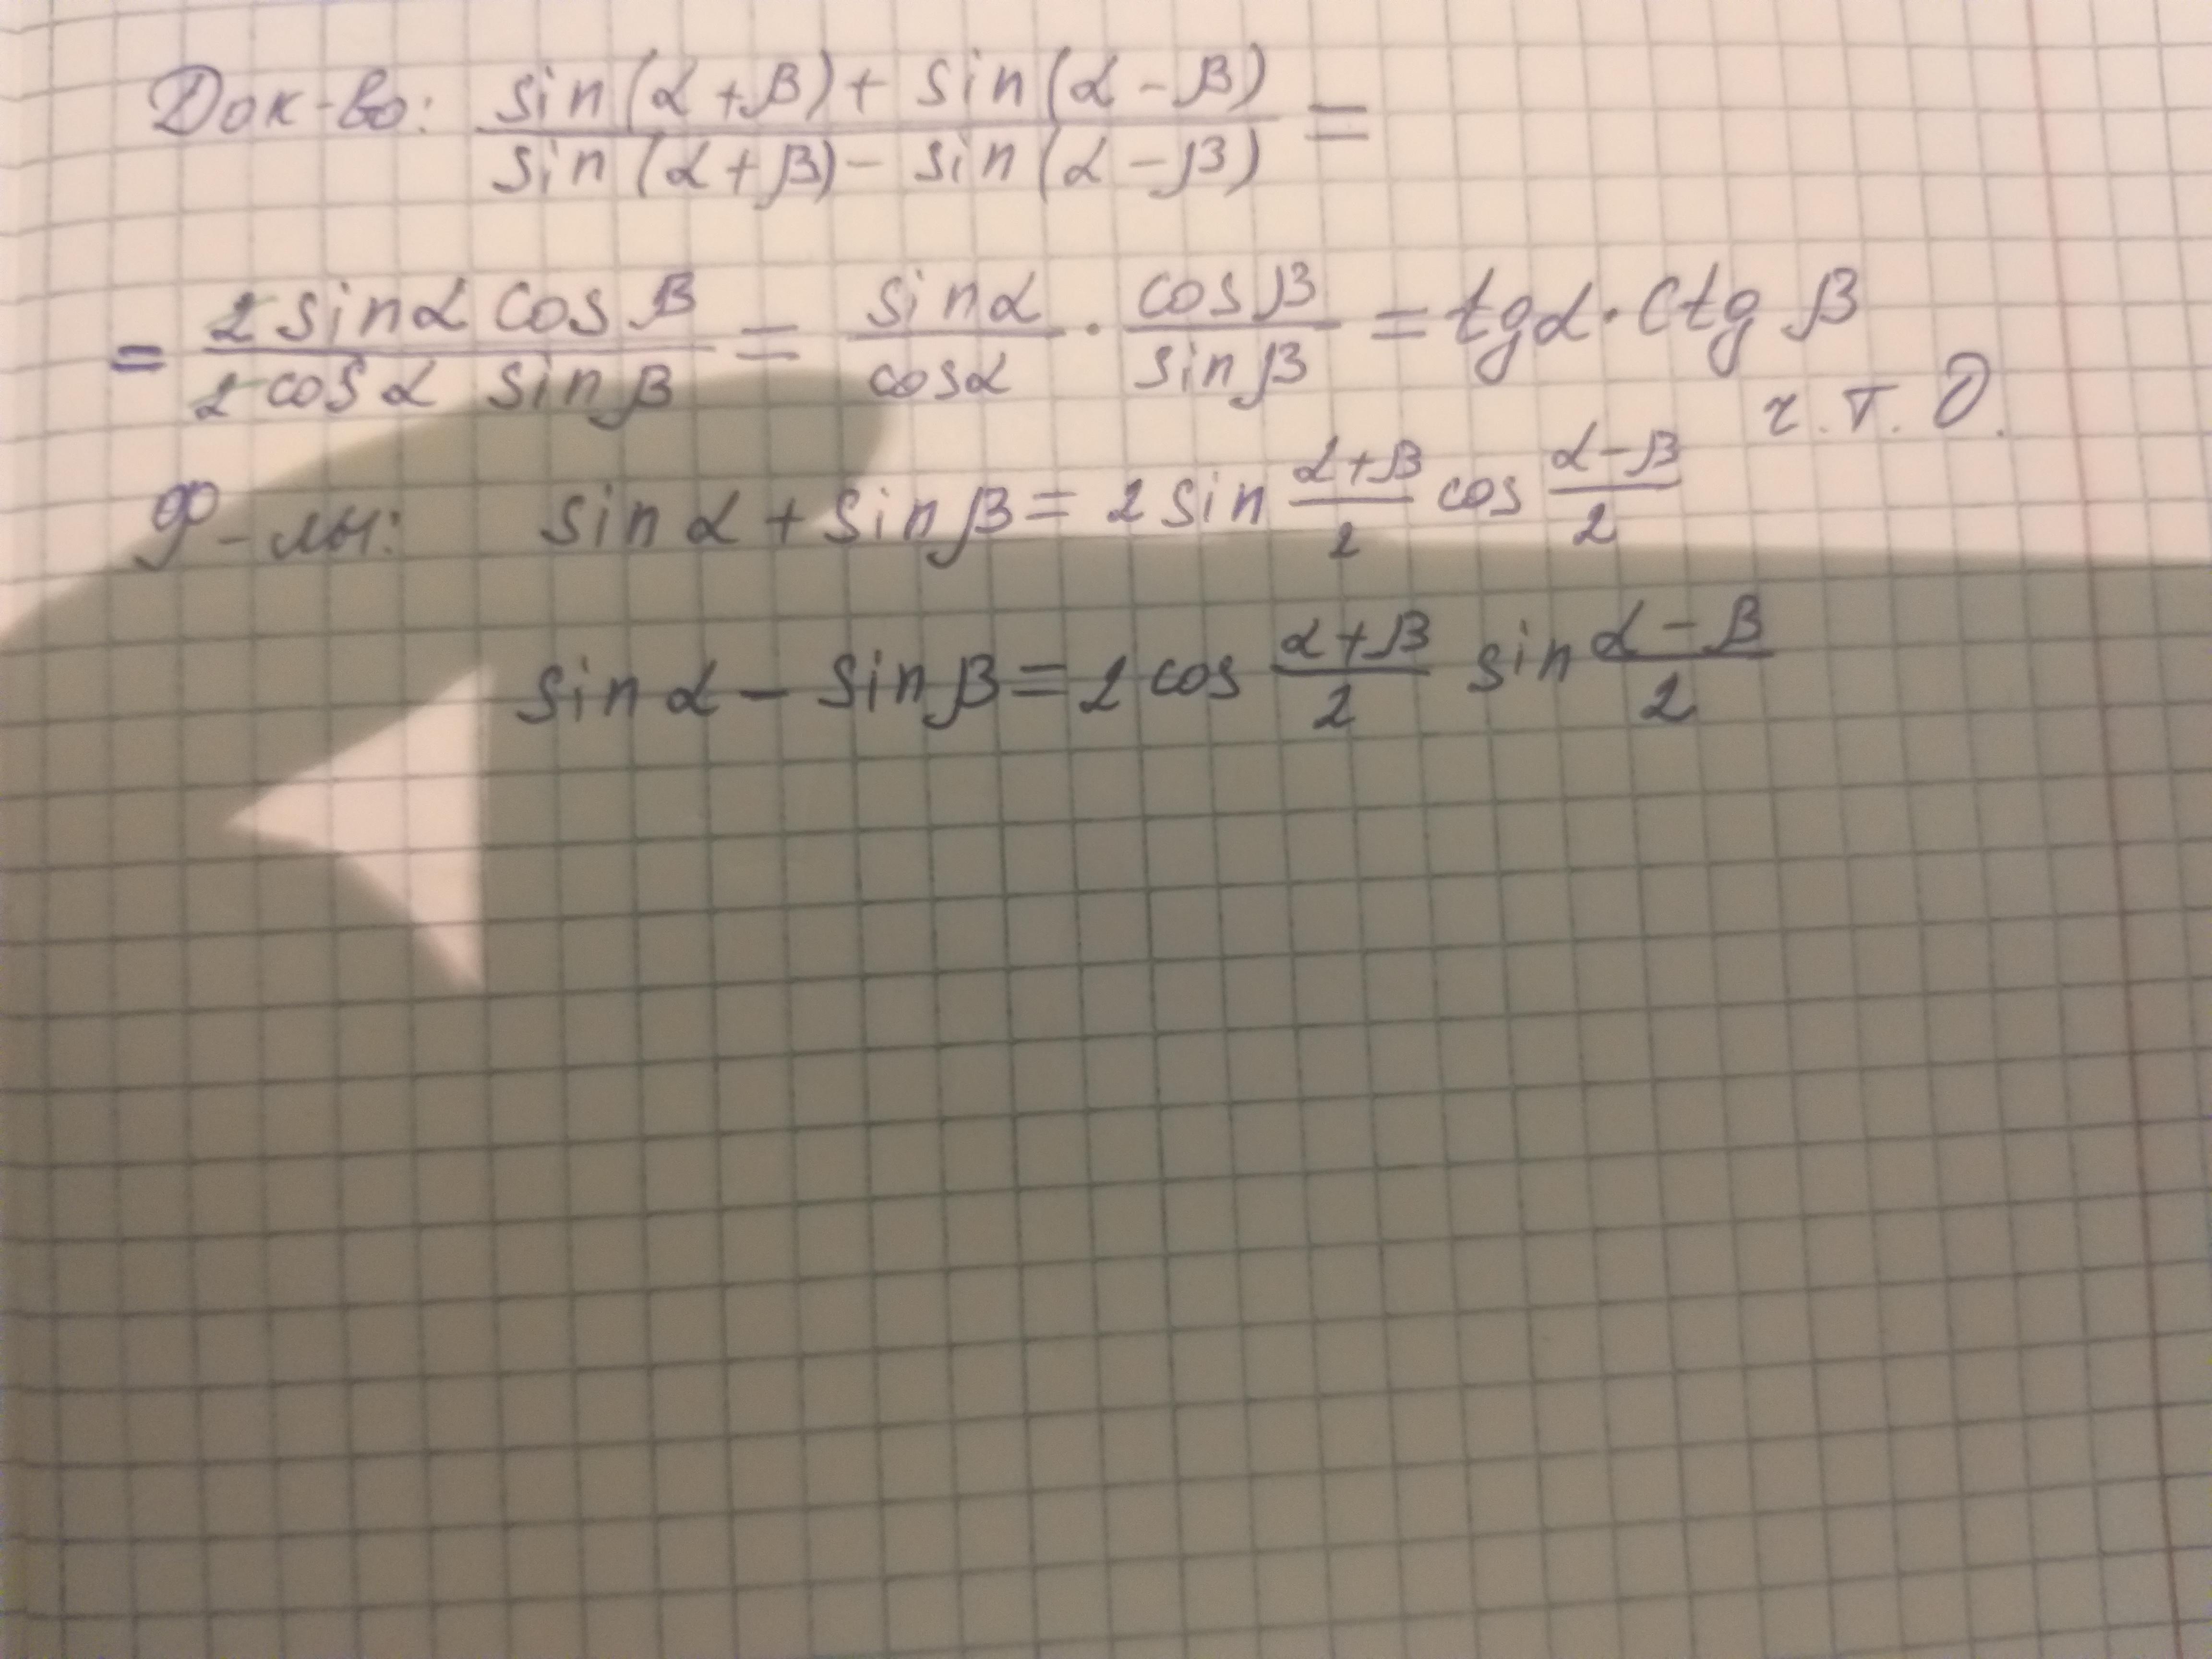 Док-во: (sin(α+β)+sin(α-β))/(sin(α+β)-sin(α-β)) =
= (2 sinα cosβ)/(2 cosα sinβ) = sinα/cosα · cosβ/sinβ = tgα·ctgβ
ч.т.д.
Ф-лы: sinα + sinβ = 2 sin (α+β)/2 cos (α-β)/2
sinα - sinβ = 2 cos (α+β)/2 sin (α-β)/2